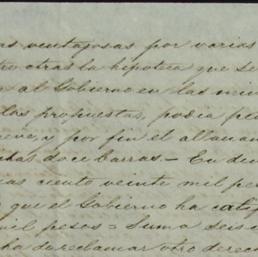 as ventajosas por varias
otras la hipoteca que se
al Gobierno en las
las propuestas, podia
y por fin el allanam
chas doce barras = En
cas ciento veinte mil pe
que el Gobierno ha
mil pesos = Suma seis c
de reclamar otro derec